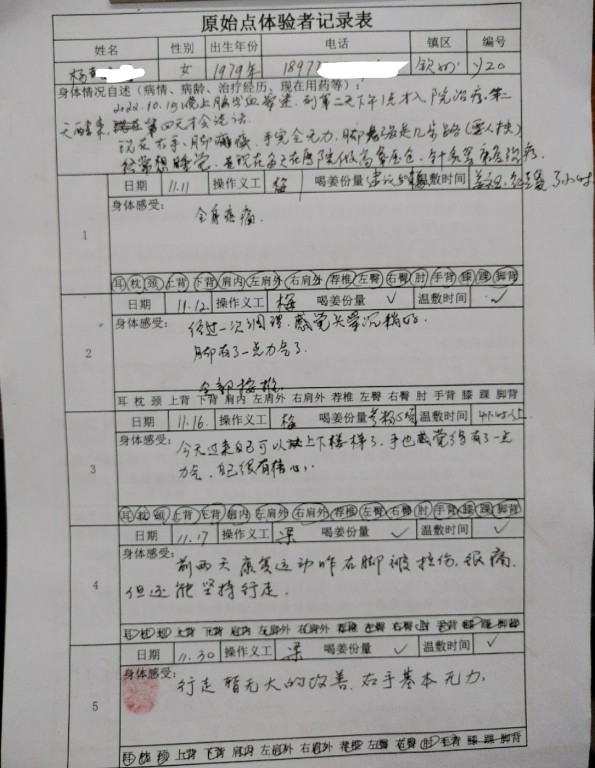 原始点体验者记录表
姓名 性别 出生年份 电话 镇区 编号
杨 女 1979年 1897 钦州 y20
身体情况自述（病情、病龄、治疗经历、现在用药等）：
2022.10.15晚上脑出血昏迷,到第二天下午1点才入院治疗.第二
天醒来,第四天才会说话.
现在右手、脚 手完全无力,脚 是几步路(要人扶)
经常想睡觉.现在每天在医院做高压仓、针灸等康复治疗.
日期 11.11 操作义工 梅 喝姜份量 建议 温敷时间 小时
1
身体感受：
全身疼痛.
耳 枕 颈 上背 下背 肩内 左肩外 右肩外 荐椎 左臀 右臀 肘 手背 膝 踝 脚背
日期 11.12 操作义工 梅 喝姜份量 ✓ 温敷时间 ✓
2
身体感受：
经过一次调理.感觉头晕沉 的.
脚有了一点力气了.
全部按推
耳 枕 颈 上背 下背 肩内 左肩外 右肩外 荐椎 左臀 右臀 肘 手背 膝 踝 脚背
日期 11.16. 操作义工 梅 喝姜份量 参粉5 温敷时间 4小时以上
3
身体感受：
今天过来自己可以 上下楼梯了.手也感觉 有了一点
力气.自己很有信心.
耳 枕 颈 上背 下背 肩内 左肩外 右肩外 荐椎 左臀 右臀 肘 手背 膝 踝 脚背
日期 11.17 操作义工 梁 喝姜份量 ✓ 温敷时间 ✓
4
身体感受：
前两天康复运动时右脚被拉伤.很痛.
但还能坚持行走.
耳 枕 颈 上背 下背 肩内 左肩外 右肩外 荐椎 左臀 右臀 肘 手背 膝 踝 脚背
日期 11.30 操作义工 梁 喝姜份量 ✓ 温敷时间 ✓
5
身体感受：
行走暂无大的改善.右手基本无力.
耳 枕 颈 上背 下背 肩内 左肩外 右肩外 荐椎 左臀 右臀 肘 手背 膝 踝 脚背